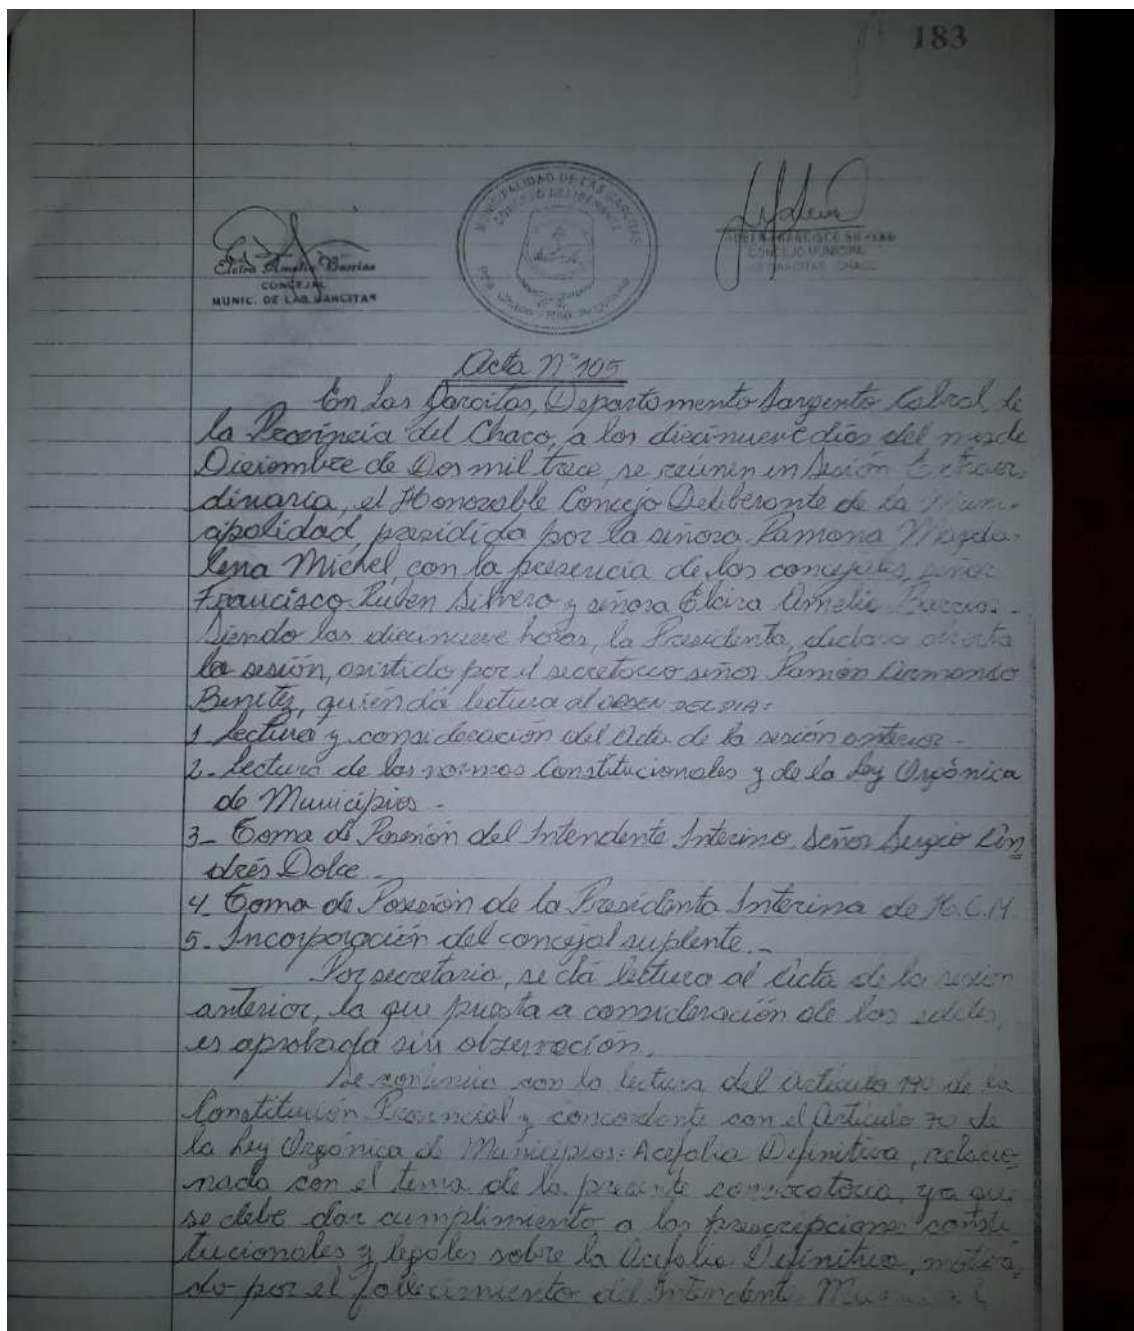 183
MUNICIPALIDAD DE LAS GARCITAS
CONCEJO DELIBERANTE
Elcira Amelia Barrios
CONCEJAL
MUNIC. DE LAS GARCITAS
CONCEJO MUNICIPAL
LAS GARCITAS - CHACO
Acta N° 105
En Las Garcitas, Departamento Sargento Cabral de
la Provincia del Chaco, a los diecinueve días del mes de
Diciembre de Dos mil trece, se reúnen en Sesión Extraor-
dinaria, el Honorable Concejo Deliberante de la Muni-
cipalidad, presidida por la señora Ramona Magda-
lena Michel, con la presencia de los concejales, señor
Francisco Ruben Silvero y señora Elcira Amelia Barrios.-
Siendo las diecinueve horas, la Presidenta, declara abierta
la sesión, asistido por el secretario señor Ramón Armando
Benitez, quién dá lectura al ORDEN DEL DIA:
1_ Lectura y consideración del Acta de la sesión anterior.-
2_ Lectura de las normas Constitucionales y de la Ley Orgánica
de Municipios.-
3_ Toma de Posesión del Intendente Interino Señor Sergio An
drés Dolce.-
4_ Toma de Posesión de la Presidenta Interina de H.C.M.
5_ Incorporación del concejal suplente.-
Por secretaria, se dá lectura al Acta de la sesión
anterior, la que puesta a consideración de los ediles,
es aprobada sin observación.
Se continúa con la lectura del Artículo 190 de la
Constitución Provincial y concordante con el Artículo 70 de
la Ley Orgánica de Municipios: Acefalia Definitiva, relacio-
nada con el tema de la presente convocatoria, ya que
se debe dar cumplimiento a las prescripciones consti
tucionales y legales sobre la Acefalia Definitiva, motiva-
do por el fallecimiento del Intendente Municipal